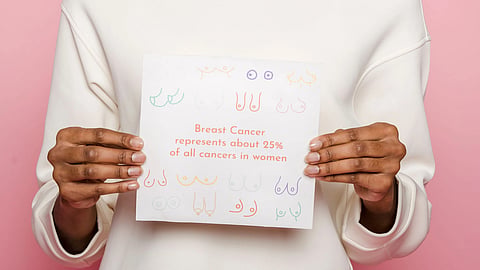 Breast Cancer
represents about 25%
of all cancers in women